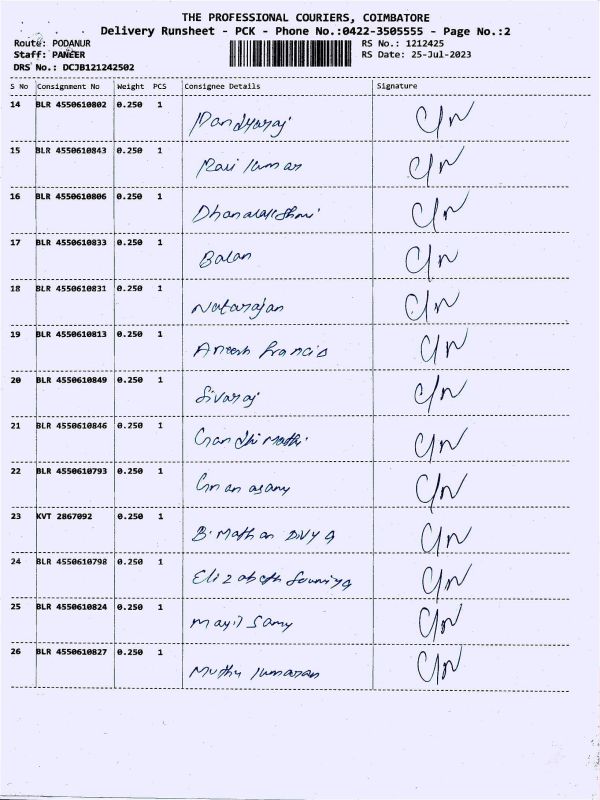 THE PROFESSIONAL COURIERS, COIMBATORE
Delivery Runsheet - PCK - Phone No.:0422-3505555 - Page No.:2
Route: PODANUR RS No.: 1212425
Staff: PANEER RS Date: 25-Jul-2023
DRS No.: DCJB121242502
S No Consignment No Weight PCS Consignee Details Signature
14 BLR 4550610802 0.250 1
Pandyaraj C/N
15 BLR 4550610843 0.250 1
Ravi Kumar C/N
16 BLR 4550610806 0.250 1
Dhanalakshmi C/N
17 BLR 4550610833 0.250 1
Balan C/N
18 BLR 4550610831 0.250 1
Natarajan C/N
19 BLR 4550610813 0.250 1
Aneesh Francis C/N
20 BLR 4550610849 0.250 1
Sivaraj C/N
21 BLR 4550610846 0.250 1
Gandhi Mathi C/N
22 BLR 4550610793 0.250 1
C/N
23 KVT 2867092 0.250 1
B. Mathan Divya C/N
24 BLR 4550610798 0.250 1
Elizabeth Soumiya C/N
25 BLR 4550610824 0.250 1
Mayil Samy C/N
26 BLR 4550610827 0.250 1
Muthu Kumaran C/N